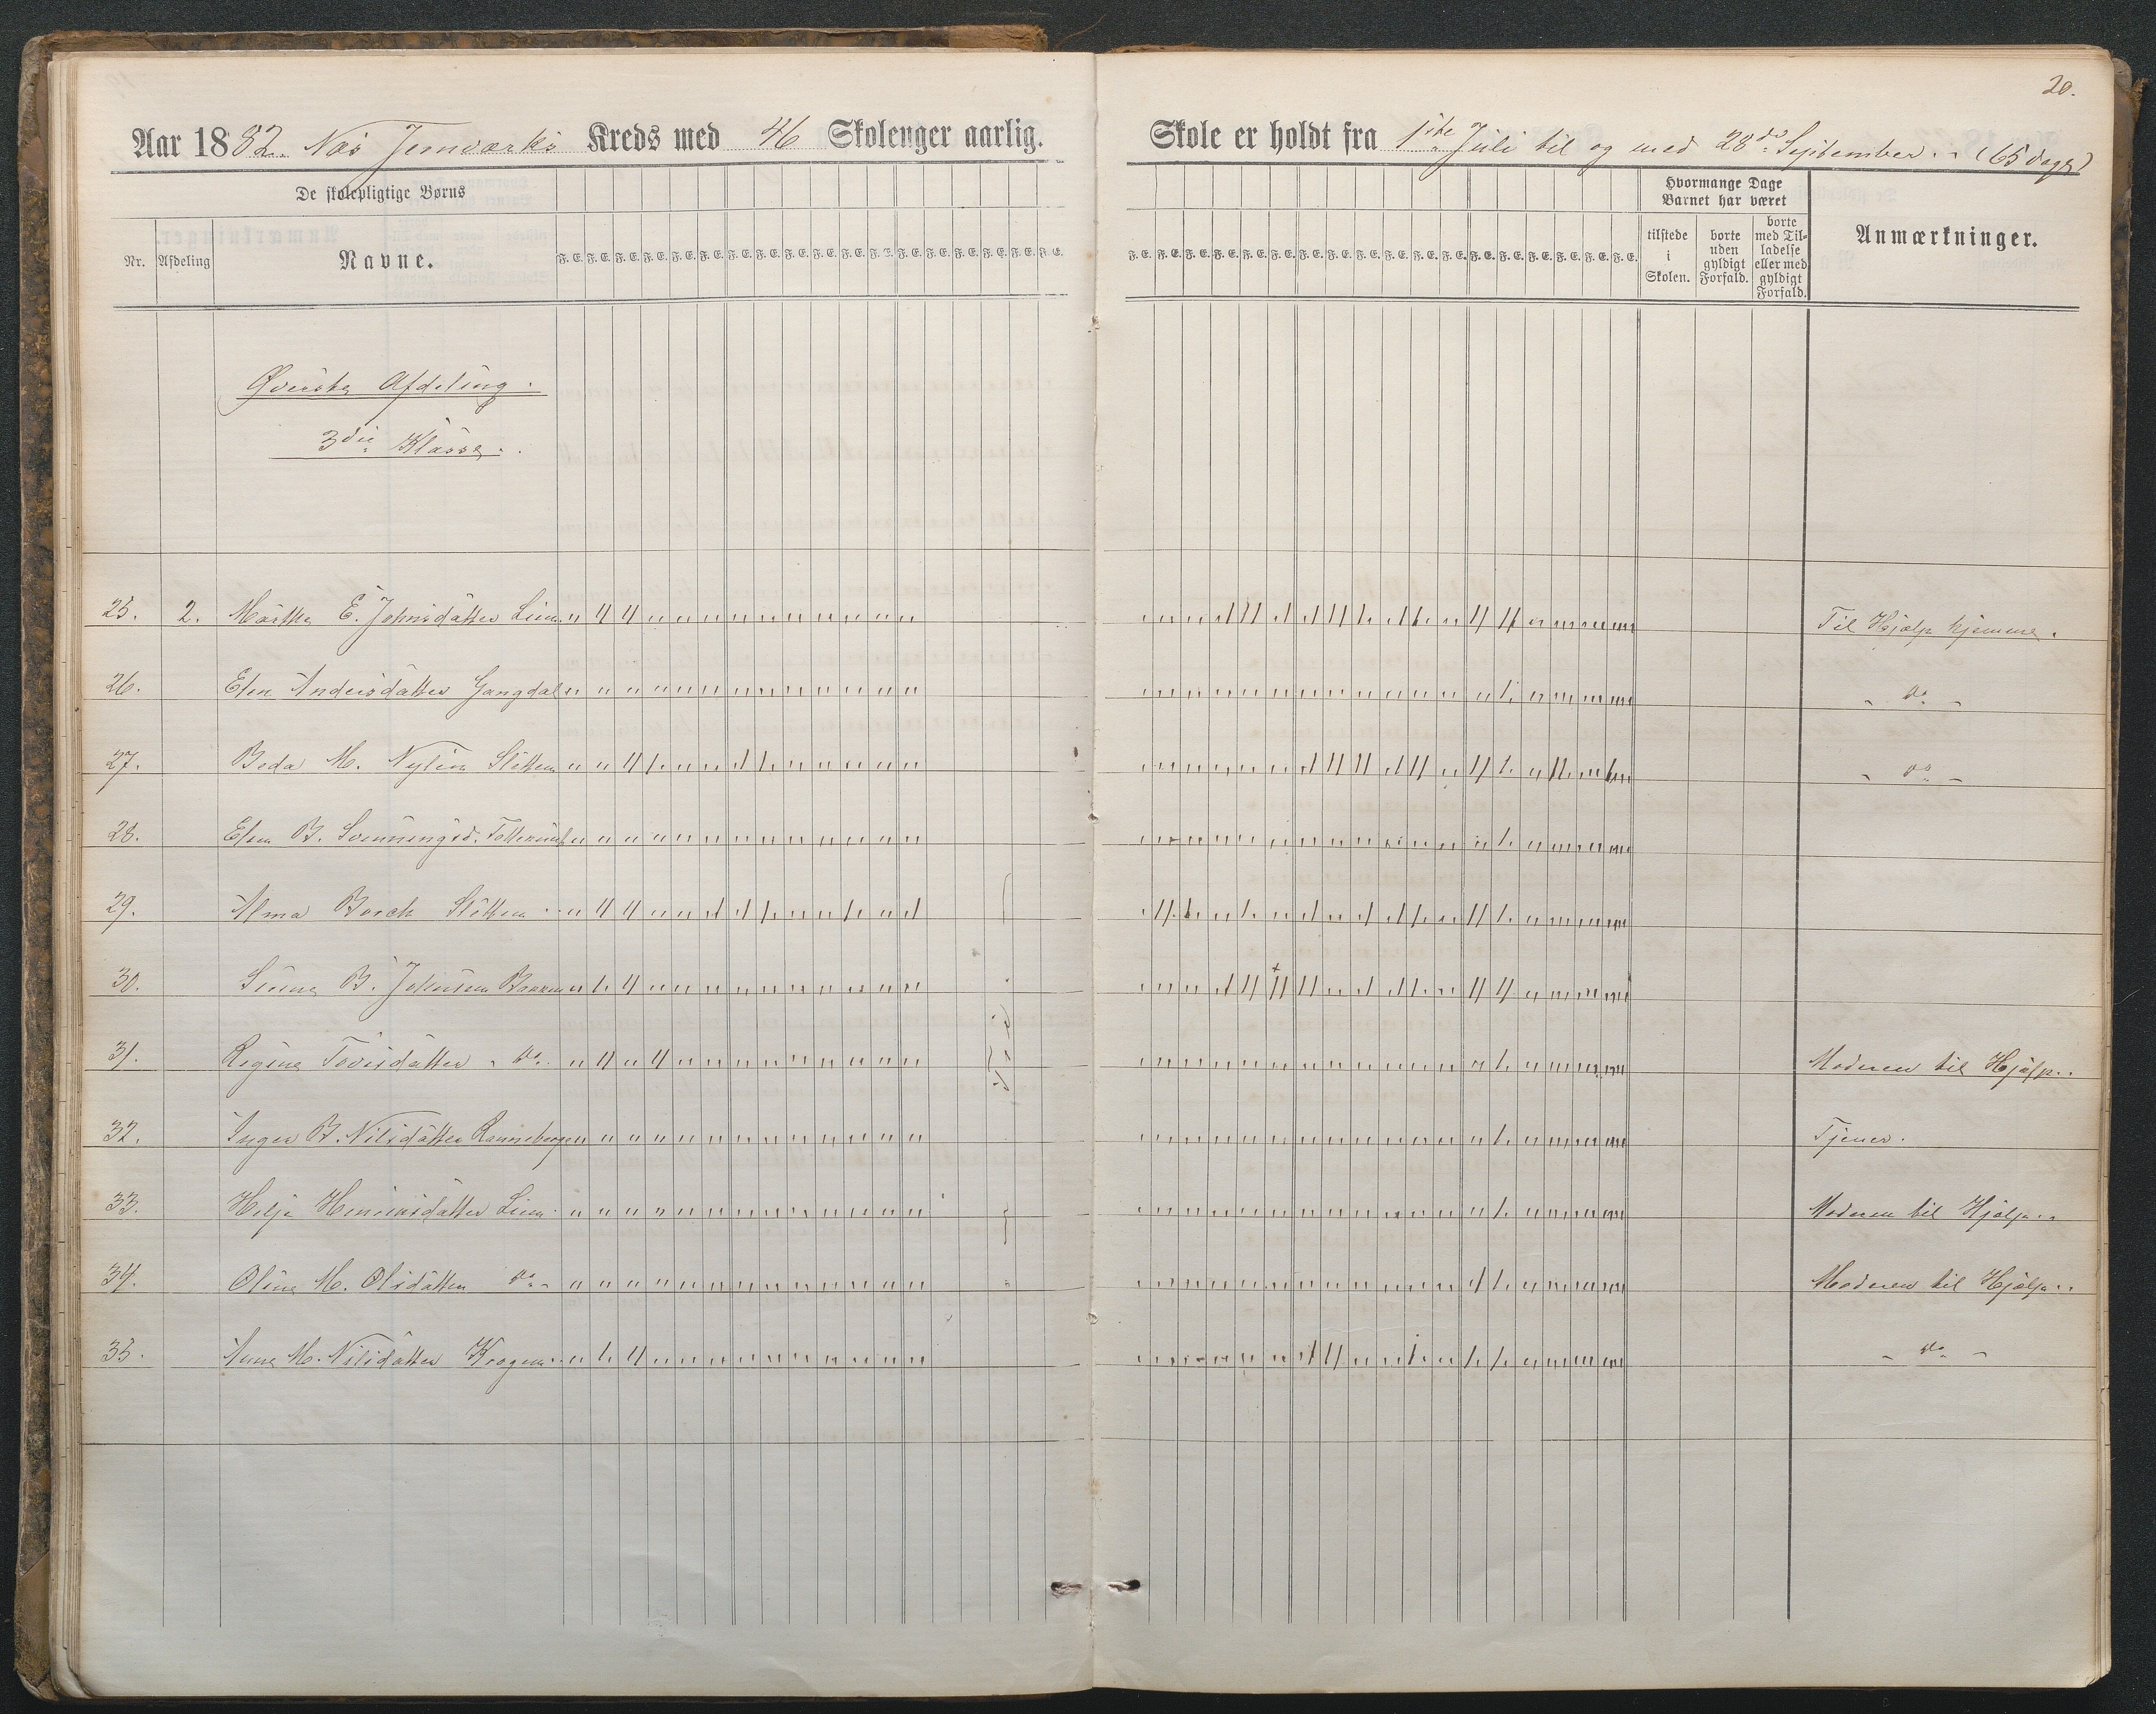 20.
Aar 1882. Næs Jernværks Kreds med 46 Skoleuger aarlig.
Skole er holdt fra 1ste Juli til og med 28de September. (65 dage)
De skolepligtige Børns
Nr. Afdeling Navne. F. E. F. E. F. E. F. E. F. E. F. E. F. E. F. E. F. E. F. E. F. E. F. E. F. E. F. E. F. E. F. E. F. E. F. E.
F. E. F. E. F. E. F. E. F. E. F. E. F. E. F. E. F. E. F. E. F. E. F. E. F. E. F. E. F. E. F. E. F. E. F. E.
Hvormange Dage
Barnet har været
tilstede
i
Skolen.
borte
uden
gyldigt
Forfald.
borte
med Til-
ladelse
eller med
gyldigt
Forfald.
Anmærkninger.
Øverste Afdeling.
3die Klasse.
25. 2. Marthe E. Johnsdatter Lien Til Hjælp hjemme.
26. Elen Andersdatter Gangdal " do "
27. Beda M. Nylin Sletten " do "
28. Elen B. Svenningsd.
29. Alma Borch Sletten
30. B. Johnsen
31. Regine Tovisdatter " do Moderen til Hjælp.
32. Inger B. Nilsdatter Ranneberget Tjener.
33. Helje Lien Moderen til Hjælp.
34. Oline M. Olsdatter do Moderen til Hjælp.
35. Anne M. Nilsdatter Kragen " do "